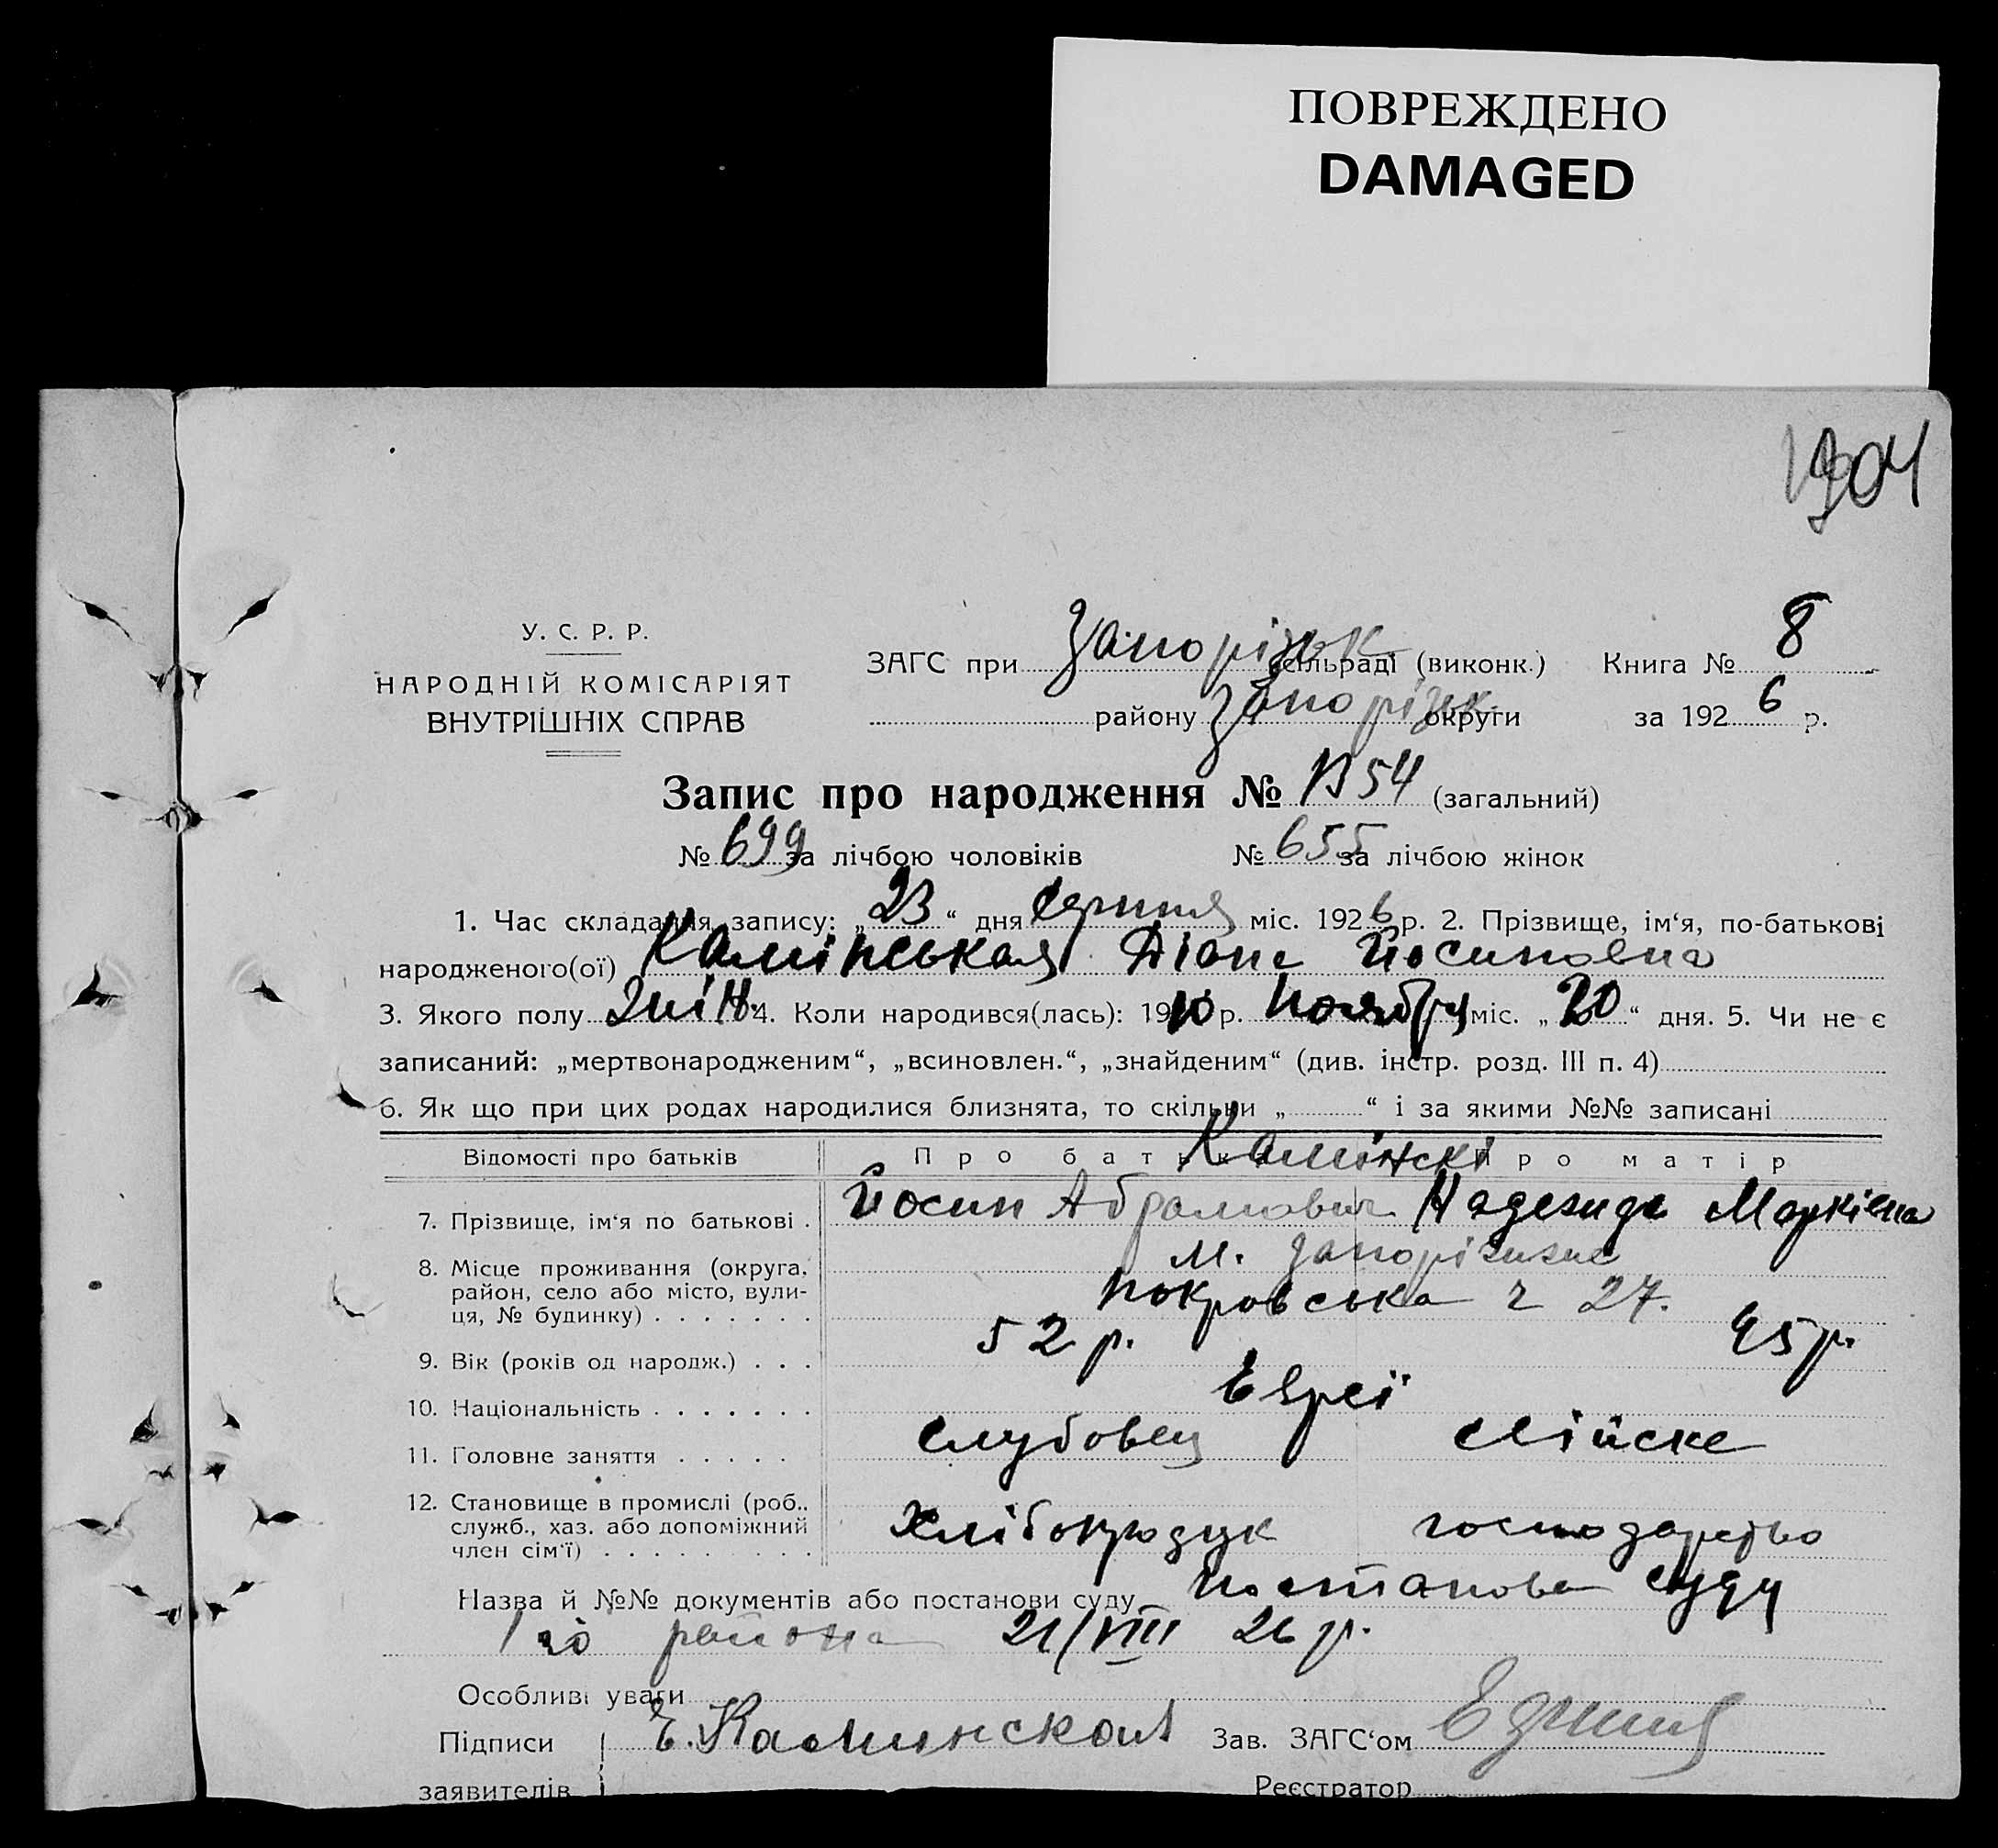 ПОВРЕЖДЕНО
DAMAGED
У. С. Р. Р.
НАРОДНІЙ КОМІСАРІЯТ
ВНУТРІШНІХ СПРАВ
ЗАГС при Запорізьк сільраді (виконк.) Книга № 8
району Запорізьк. округи за 192 6 р.
Запис про народження № 1354 (загальний)
№ 699 за лічбою чоловіків № 655 за лічбою жінок
1. Час складання запису: „23“ дня Серпня міс. 192 6 р. 2. Прізвище, ім‘я, по-батькові
народженого(ої) Камінськая Діана Йосиповна
3. Якого полу жін. 4. Коли народився(лась): 19 10 р. Ноября міс. „20“ дня. 5. Чи не є
записаний: „мертвонародженим“, „всиновлен.“, „знайденим“ (див. інстр. розд. III п. 4)
6. Як що при цих родах народилися близнята, то скільки „ “ і за якими №№ записані
Відомості про батьків Про батька Про матір
Камінскі
7. Прізвище, ім‘я по батькові . Йосип Абрамович Надежда Марківна
8. Місце проживання (округа, м. Запоріжжє
район, село або місто, вули-
ця, № будинку) . . . . . . . Покровська ч 27.
9. Вік (років од народж.) . . . 52 р. 45 р.
10. Національність . . . . . . . Євреї
11. Головне заняття . . . . . Службовец
12. Становище в промислі (роб.,
служб., хаз. або допоміжний Хлібопродук господарство
член сім‘ї) . . . . . . . . .
Назва й №№ документів або постанови суду Постанова суду
1го района 21/VIII 26 р.
Особливі уваги
Підписи Е. Каминская Зав. ЗАГС‘ом
заявителів Реєстратор